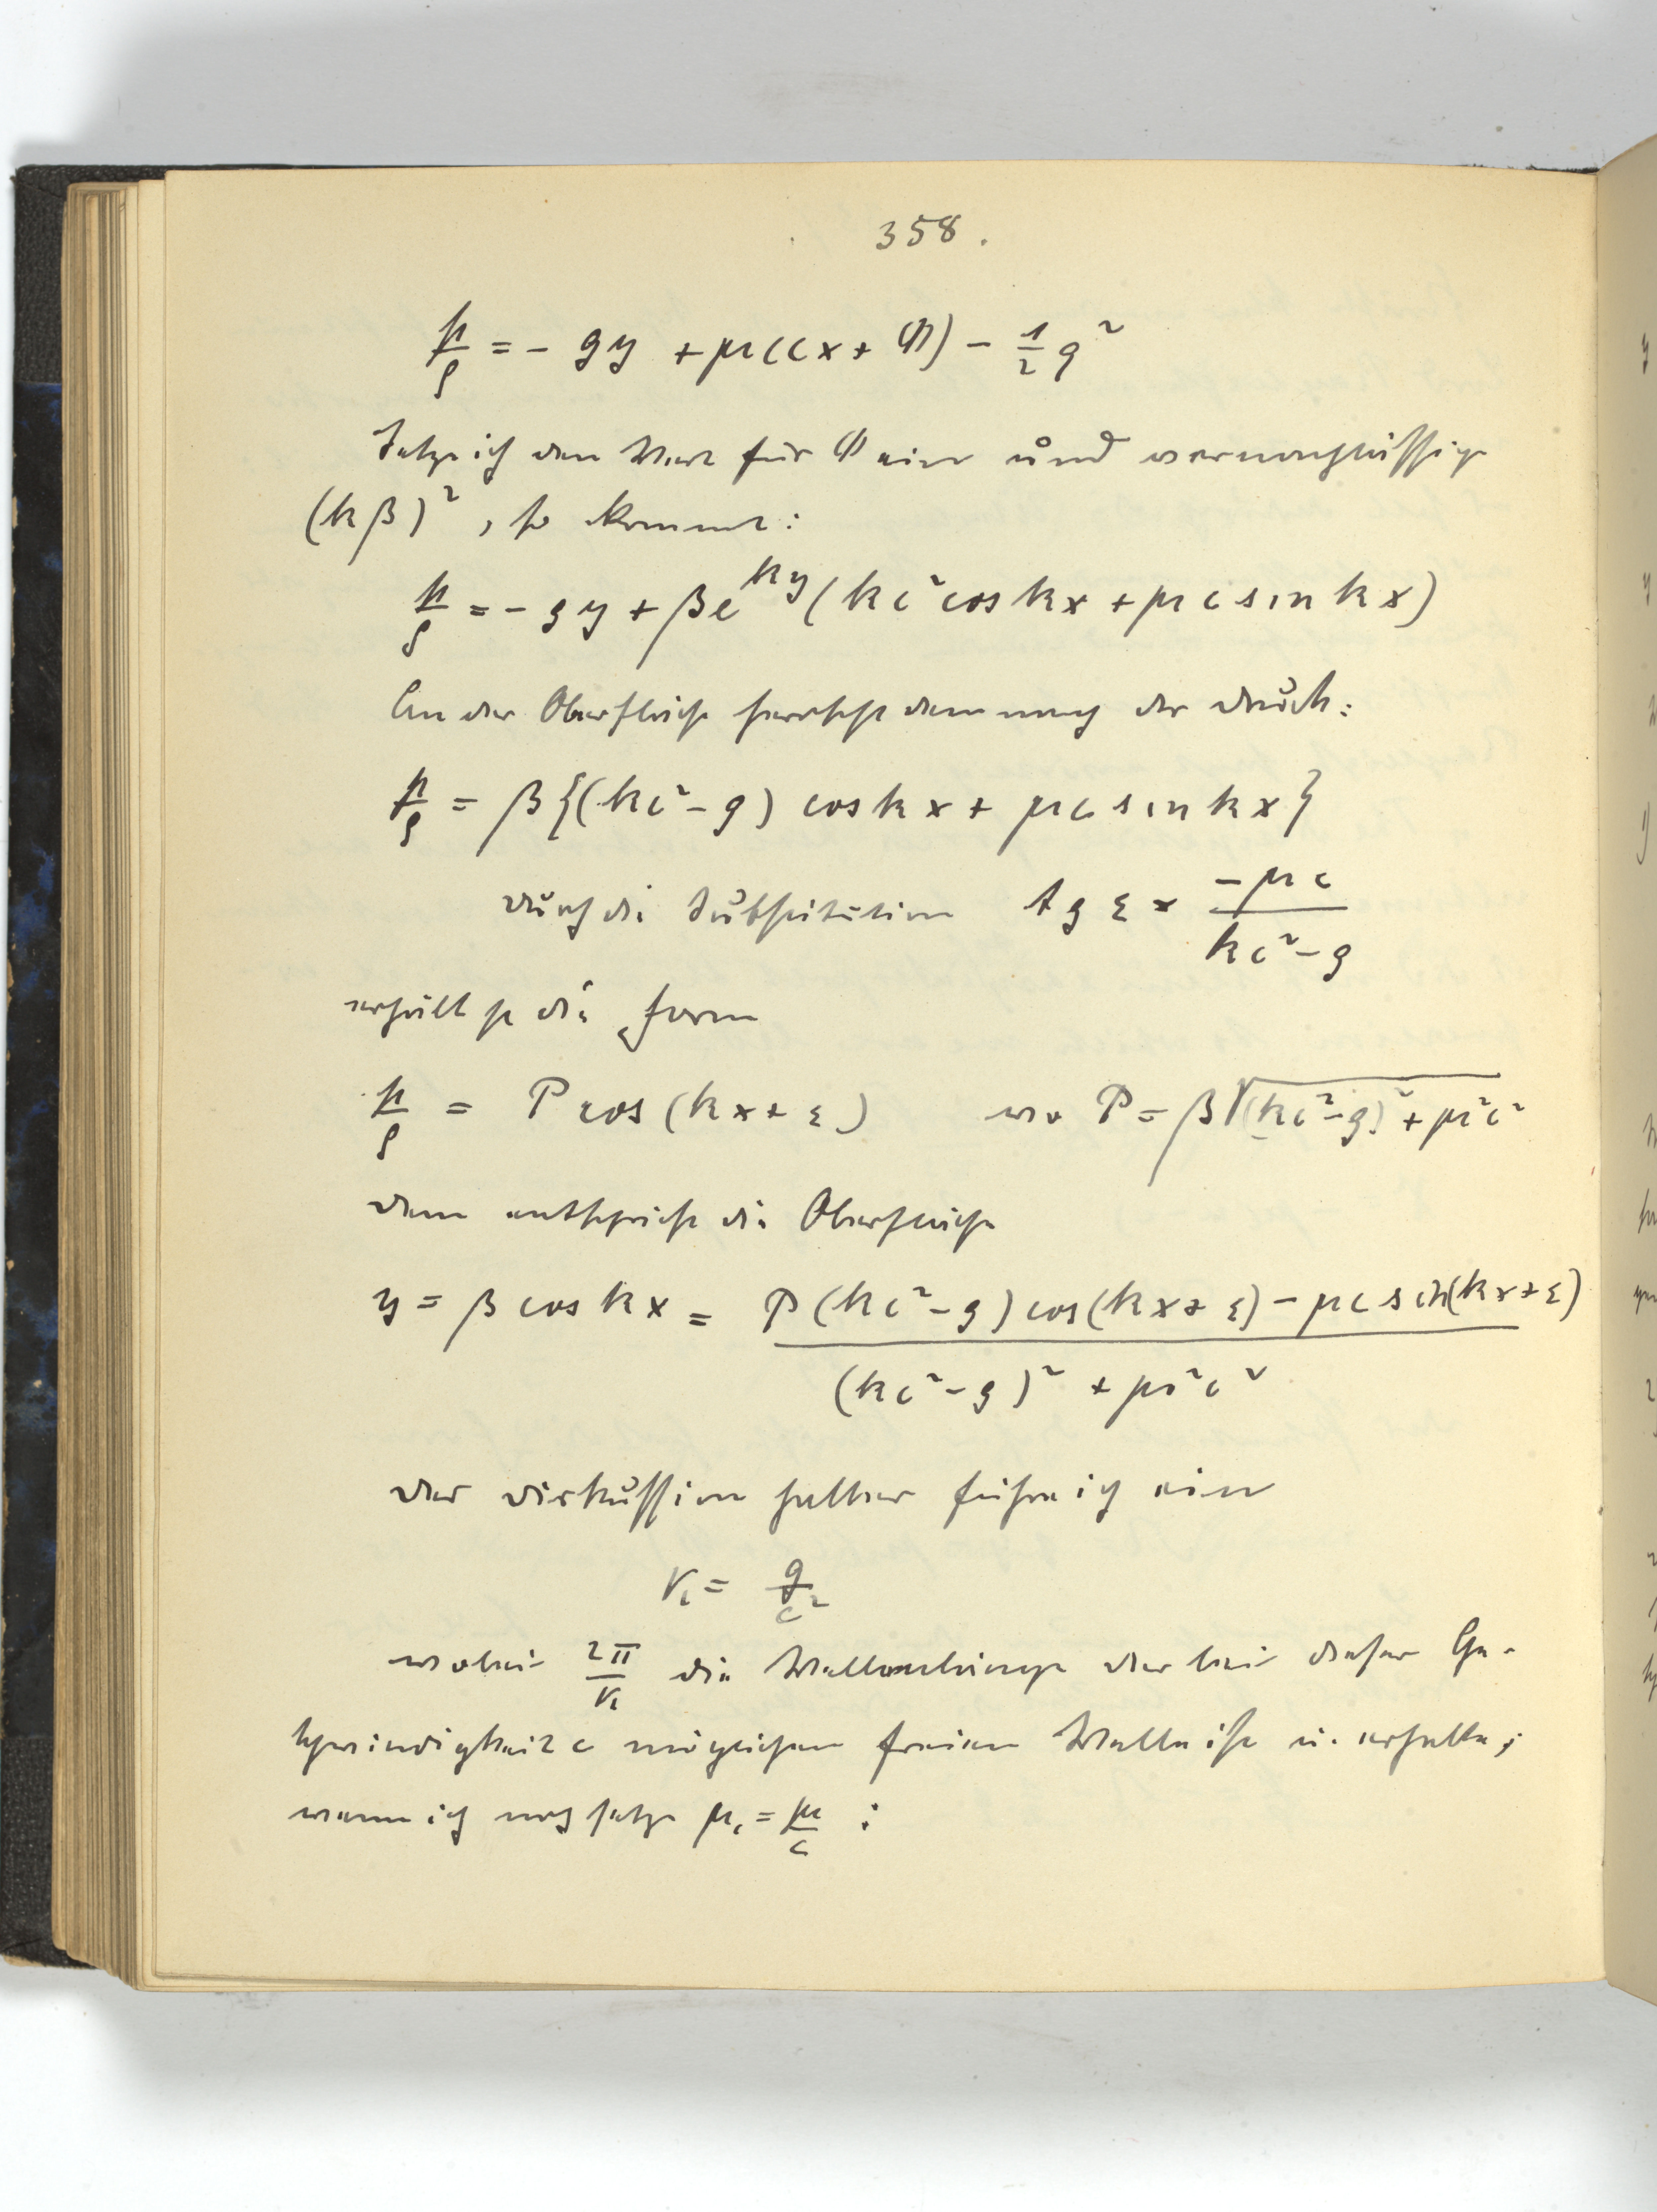 358.
p/ρ = - gy + μ(cx + Φ) - 1/2 q²
Setze ich den Wert für Φ ein und vernachlässige
(kβ)², so kommt:
p/ρ = - gy + βe^{ky}(kc² cos kx + μc sin kx)
An der Oberfläche herrscht demnach der Druck:
p/ρ = β{(kc² - g) cos kx + μc sin kx}
Durch die Substitution tg ε = -μc/(kc² - g)
erhält sie die Form
p/ρ = P cos(kx + ε) wo P = β√((kc² - g)² + μ²c²)
Dem entspricht die Oberfläche
y = β cos kx = P(kc² - g) cos(kx + ε) - μc sin(kx + ε) / (kc² - g)² + μ²c²
Der Diskussion halber führe ich ein
K₁ = g/c²
wobei 2π/K₁ die Wellenlänge der bei dieser Ge-
schwindigkeit c möglichen freien Welle ist u. erhalte,
wenn ich noch setze μ₁ = μ/c :